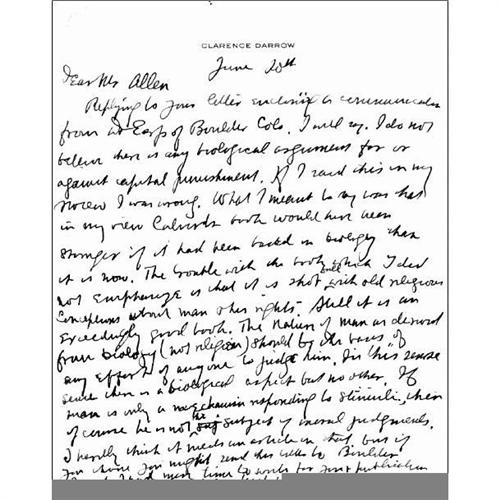 CLARENCE DARROW
June 20th
Dear Mr Allen
Replying to your letter enclosing a communication
from Ed Earp of Boulder Colo. I will say. I do not
believe there is any biological argument for or
against capital punishment. If I said this in my
review I was wrong. What I meant to say was that
in my view Calverts book would have been
stronger if it had been backed in biology than
it is now. The trouble with the book which I did
not emphasize is that it is shot full with old religious
conceptions about man other rights. Still it is an
exceedingly good book. The nature of man as derived
from biology (not religion) should be the basis of
any effort of anyone to judge him. In this sense
sense there is a biological aspect but no other. If
man is only a mechanism responding to stimuli, then
of course he is not the subject of moral judgments.
I hardly think it needs an article on that, but if
you choose you might send this letter to Boulder
time to write for your publication